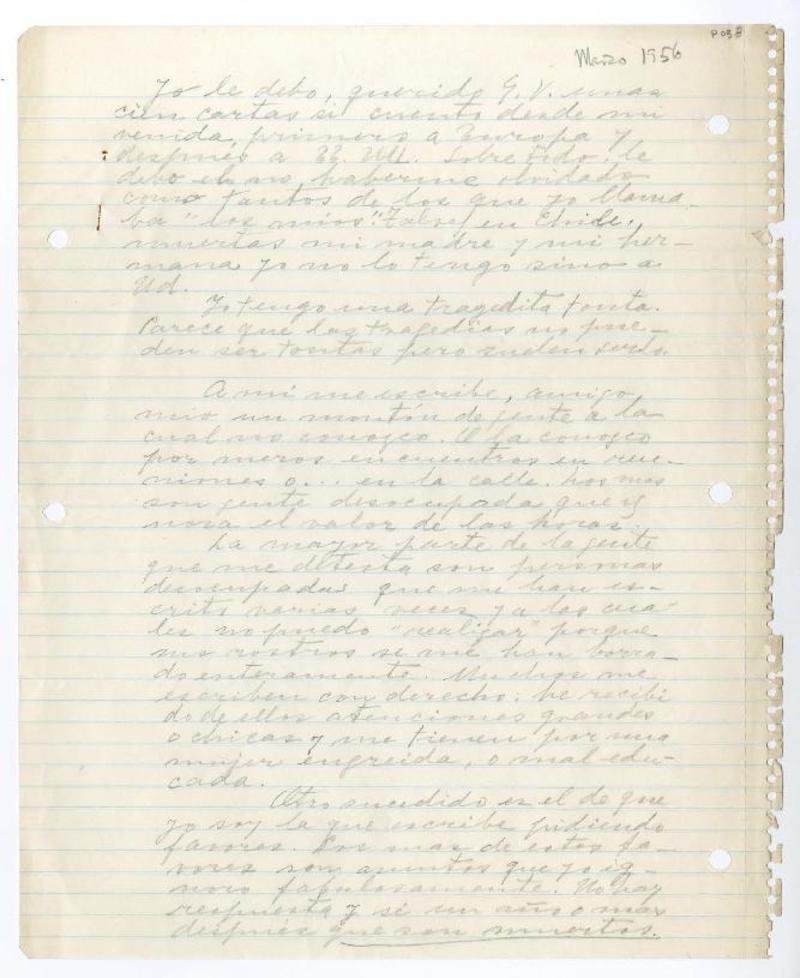 P 038
Marzo 1956
Yo le debo, querido G. V. unas
cien cartas si cuento desde mi
venida, primero a Europa y
después a EE. UU. Sobre todo, le
debo el no haberme olvidado
como tantos de los que yo llama-
ba "los míos". Talvez en Chile,
muertas mi madre y mi her-
mana yo no lo tengo sino a
Ud.
Yo tengo una tragedita tonta.
Parece que las tragedias no pue-
den ser tontas pero suelen serlo.
A mí me escribe, amigo
mio un montón de gente a la
cual no conozco. O la conozco
por meros encuentros en reu-
niones o... en la calle. Los mas
son gente desocupada que ig
nora el valor de las horas.
La mayor parte de la gente
que me detesta son personas
desocupadas que me han es-
crito varias veces y a los cua-
les no puedo "realizar" porque
sus rostros se me han borra-
do enteramente. Muchos me
escriben con derecho: he recibi
do de ellos atenciones grandes
o chicas y me tienen por una
mujer engreída, o mal edu-
cada.
Otro sucedido es el de que
yo soy la que escribe pidiendo
favores. Los mas de estos fa-
vores son asuntos que yo ig-
noro fabulosamente. No hay
respuesta y si un año o mas
después que son muertos.